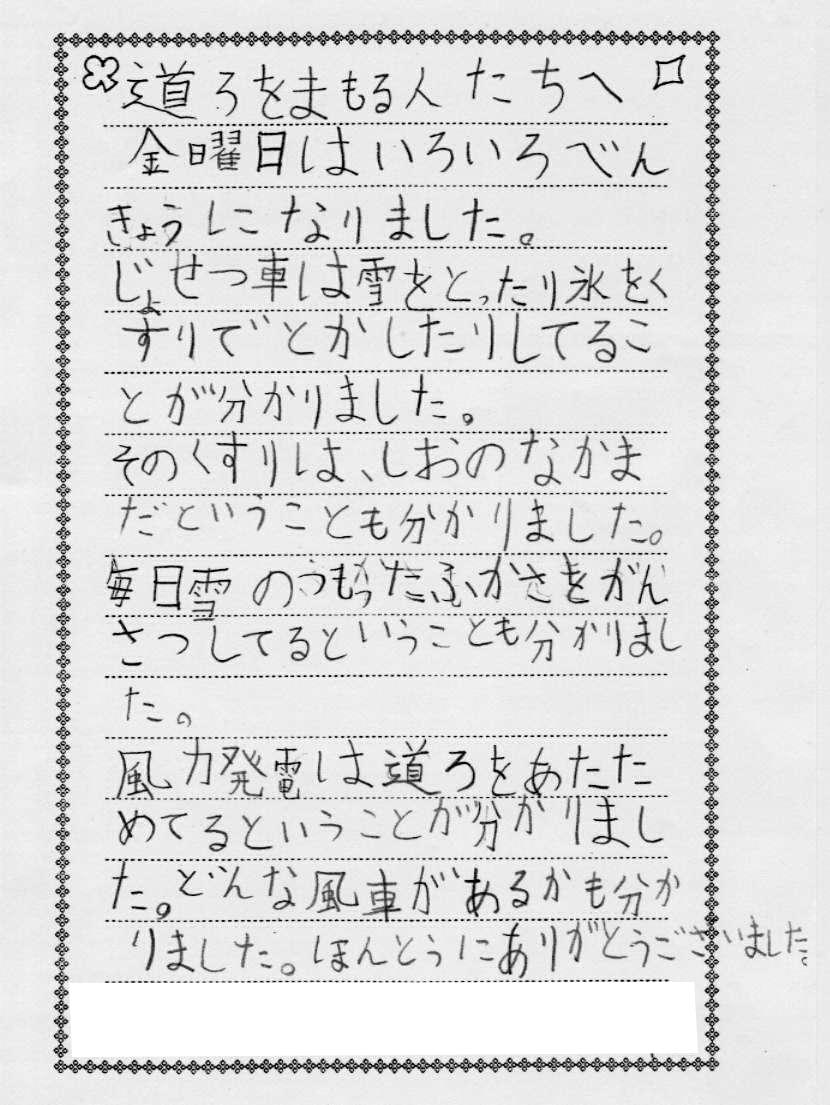 道ろをまもる人たちへ
金曜日はいろいろべん
きょうしになりました。
じょせつ車は雪をとったり氷をく
すりでとかしたりしてるこ
とが分かりました。
そのくすりは、しおのなかま
だということも分かりました。
毎日雪のつもったふかさをがん
さつしてるということも分かりまし
た。
風力発電は道ろをあたた
めてるということが分かりまし
た。どんな風車があるかも分か
りました。ほんとうにありがとうございました。